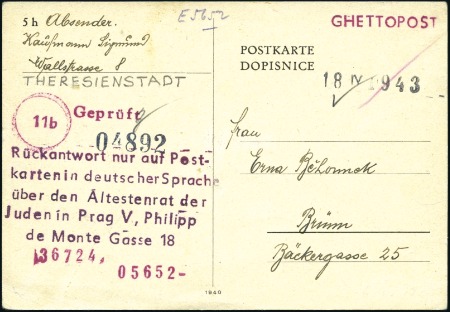 5 h Absender.
Kaufmann Sigmund
Wallstrasse 8
THERESIENSTADT
E5652
GHETTOPOST
POSTKARTE
DOPISNICE
18 IV 1943
11b
Geprüft
04892
Rückantwort nur auf Post-
karten in deutscher Sprache
über den Ältestenrat der
Juden in Prag V, Philipp
de Monte Gasse 18
36724,
05652-
Frau
Erna
Brünn
Bäckergasse 25
1940